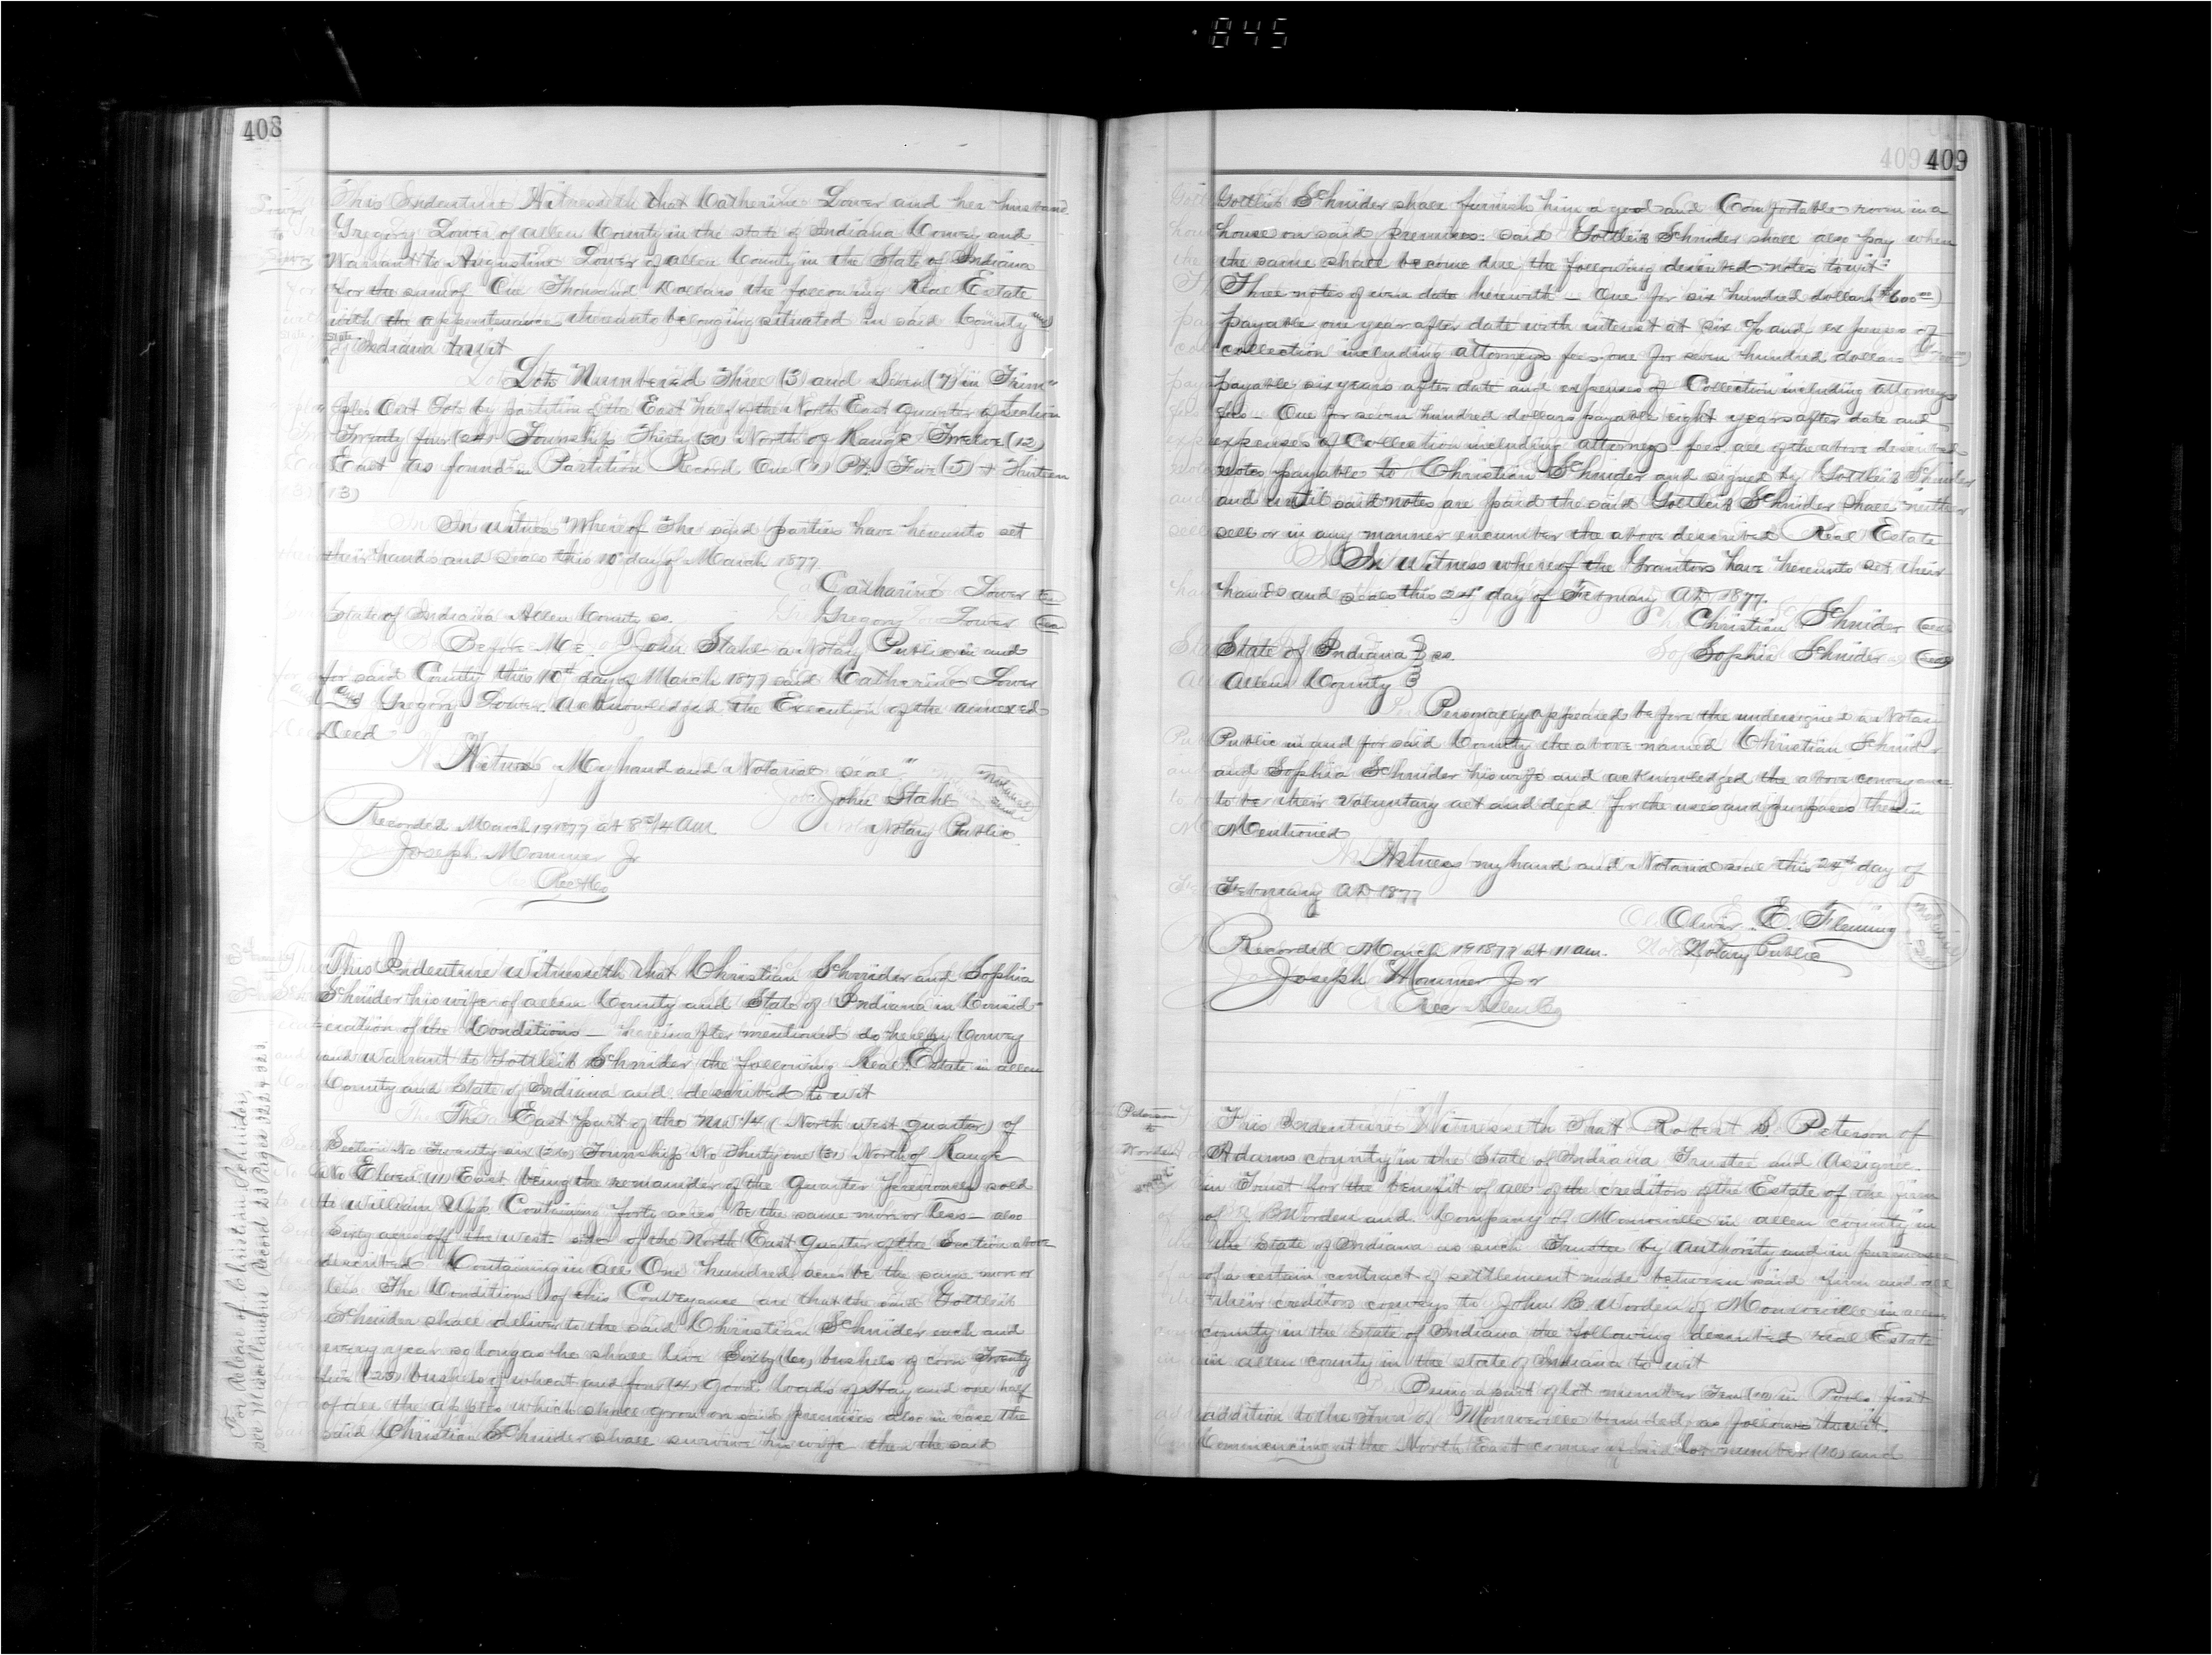 845
408
Lower
to
Lower
This Indenture Witnesseth that Catherine Lower and her husband
Gregory Lower of allen County in the state of Indiana Convey and
Warrant to Augustine Lower of allen County in the State of Indiana
for the sum of One Thousand Dollars the following Real Estate
with the appertenances thereunto belonging situated in said County and
State of Indiana to wit
Lots Numbered Three (3) and Seven (7) in
Out Lots by partition of the East half of the North East quarter of Section
Twenty four (24) Township Thirty (30) North of Range Twelve (12)
East as found in Partition Record One (1) & Thirteen
(13)
In witness Whereof The said parties have hereunto set
their hands and seals this 10th day of March 1877
Catharine Lower
State of Indiana Allen County ss. Gregory Lower
Before Me John Stahl a Notary Public in and
for said County this 10th day of March 1877 said Catherine Lower
and Gregory Lower Acknowledged the Execution of the annexed
Deed
Witness My hand and Notarial seal
John Stahl Notarial Seal
Recorded March 19 1877 at 8 3/4 Am Notary Public
Joseph Mommer Jr
This Indenture Witnesseth that Christian Schnider and Sophia
Schnider his wife of allen County and State of Indiana in Consid-
eration of the Conditions — hereinafter mentioned do hereby Convey
and warrant to Gottleib Schnider the following Real Estate in allen
County and State of Indiana and described to wit
The East part of the NW 1/4 (North west quarter) of
Section No Twenty six (26) Township No Thirty one (31) North of Range
No Eleven (11) East being the remainder of the Quarter previously sold
to William Containing forty acres be the same more or less — also
Sixty acres off the west side of the North East quarter of the Section above
described Containing in all One hundred acres be the same more or
less The Conditions of this Conveyance are that the said Gottleib
Schnider shall deliver to the said Christian Schnider each and
every year so long as he shall live Sixty (60) bushels of corn Twenty
five (25) bushels of wheat and four (4) good loads of Hay and one half
of all the apples which shall grow on said premises also in case the
said Christian Schnider shall survive his wife then the said
For Release of Christian Schnider,
see Miscellaneous Record 23 Pages 322 & 323.
409
Gottlieb Schnider shall furnish him a good and Comfortable room in a
house on said premises: said Gottleib Schnider shall also pay when
the same shall become due, the following described notes to wit:
Three notes of even date herewith — One for six hundred dollars ($600.00)
payable one year after date with interest at six % and expenses of
collection including attorneys fees, one for seven hundred dollars
payable six years after date and expenses of Collection including attorneys
fees — One for seven hundred dollars payable eight years after date and
expenses of Collection including attorneys fees, all of the above described
notes payable to Christian Schnider and signed by Gottleib Schnider
and until said notes are paid the said Gottleib Schnider shall neither
sell or in any manner encumber the above described Real Estate
In Witness whereof the Grantors have hereunto set their
hands and seals this 24th day of February AD 1877.
Christian Schnider
State of Indiana } ss. Sophia Schnider
Allen County }
Personally appeared before the undersigned a Notary
Public in and for said County the above named Christian Schnider
and Sophia Schnider his wife and acknowledged the above conveyance
to be their voluntary act and deed for the uses and purposes therein
Mentioned
Witness my hand and Notarial seal this 24th day of
February AD 1877
Oliver E. Fleming Notarial Seal
Recorded March 19 1877 at 11 am. Notary Public
Joseph Mommer Jr
Rec Allen Co
Peterson
to
Worden
This Indenture Witnesseth That Robert B. Peterson of
Adams county in the State of Indiana Trustee and Assignee
in Trust for the benefit of all of the creditors of the Estate of the firm
of Worden and Company of Monroeville in allen county in
the State of Indiana as such Trustee by authority and in pursuance
of a certain contract of settlement made between said firm and
their creditors conveys to John B Worden of Monroeville in allen
county in the State of Indiana the following described real Estate
in allen county in the state of Indiana to wit
Being a part of lot number Ten (10) in first
addition to the Town of Monroeville bounded as follows to wit.
Commencing at the North East corner of said lot number (10) and